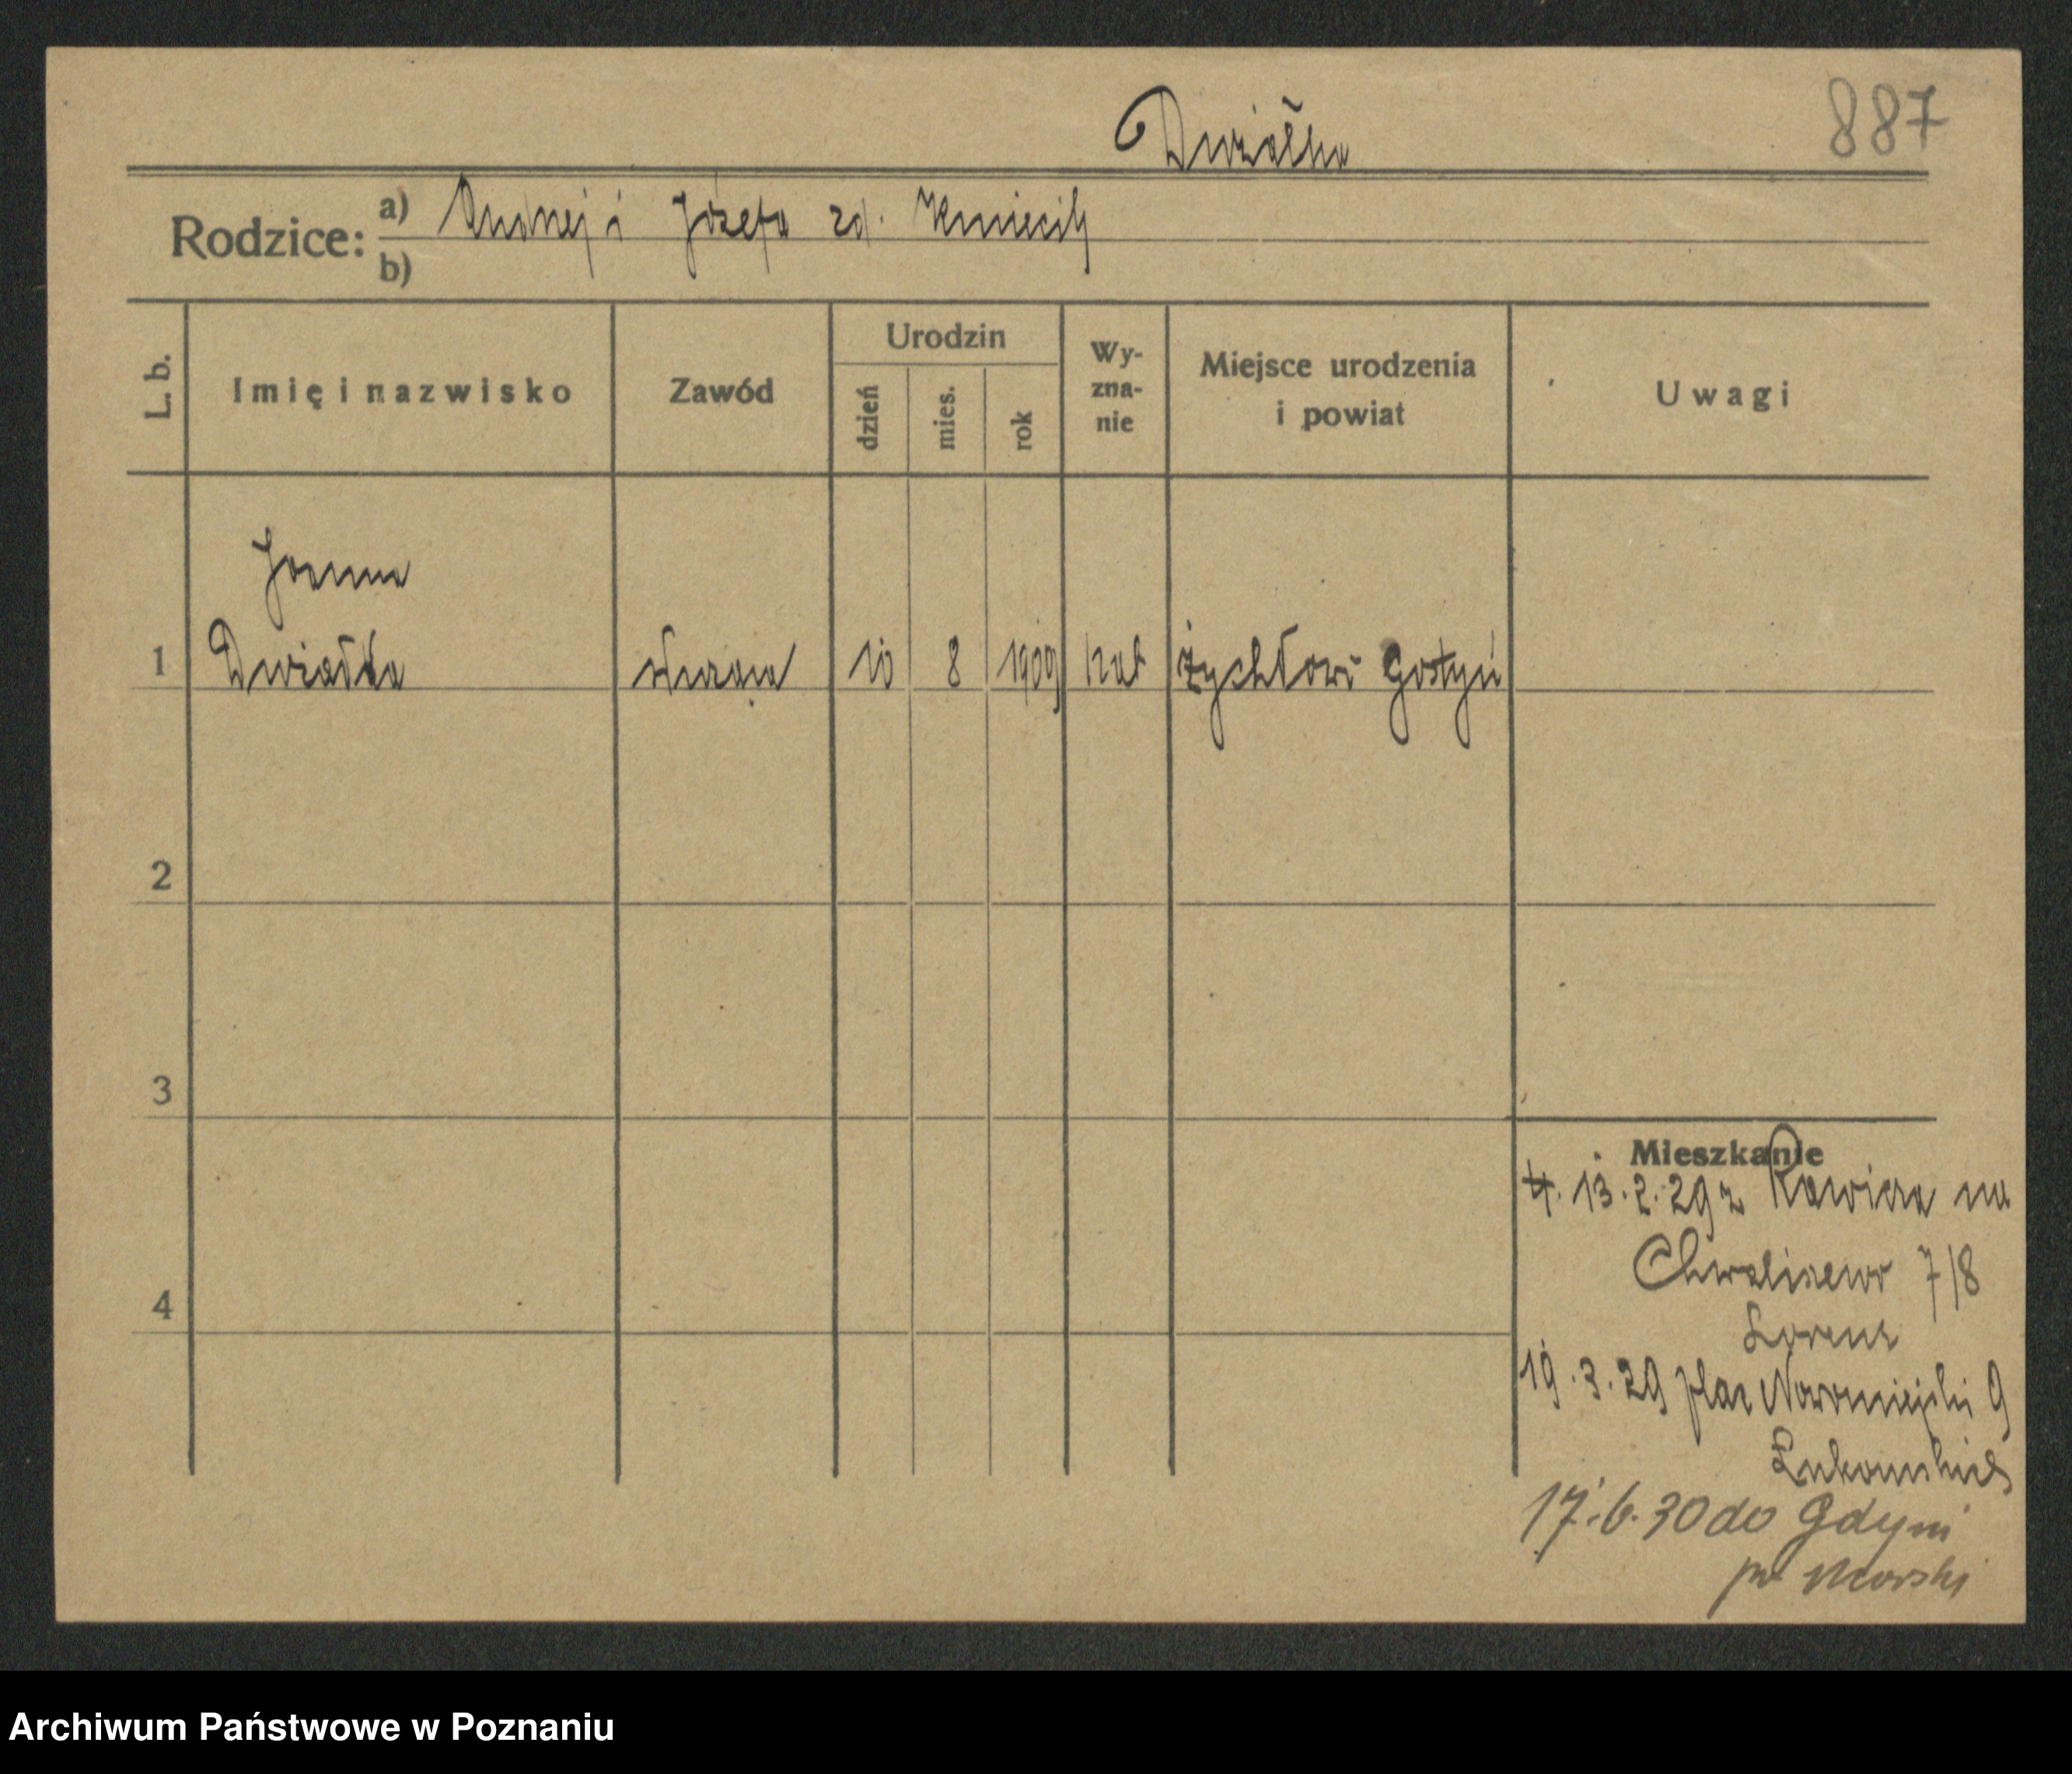 Dwiałka
887
Rodzice: a) Andrzej i Józefa zd. Kmiecik
b)
L. b.
Imię i nazwisko
Zawód
Urodzin
dzień
mies.
rok
Wy-
zna-
nie
Miejsce urodzenia
i powiat
Uwagi
Joanna
1 Dwiałka służąca 10 8 1909 kat Żychlewo Gostyń
2
3
4
Mieszkanie
13.2.29 z Rawicza na
Chwaliszewo 7/8
Lorenz
19.3.29 plac Nowomiejski 9
17.6.30 do Gdyni
pw Morski
Archiwum Państwowe w Poznaniu